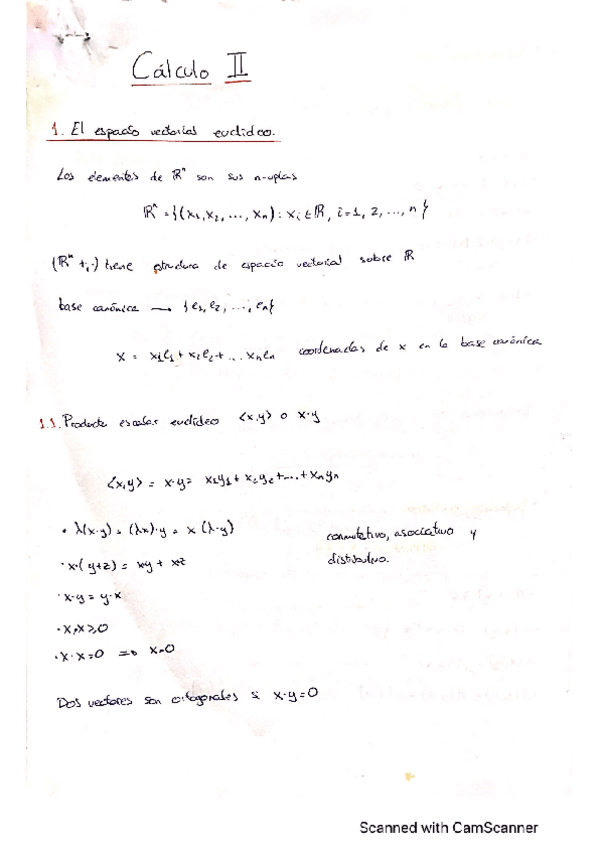 Cálculo II
1. El espacio vectorial euclideo.
Los elementos de ℝⁿ son sus n-uplas
ℝⁿ = {(x₁, x₂, ..., xₙ) : xᵢ ∈ ℝ, i = 1, 2, ..., n}
(ℝⁿ +, ·) tiene estructura de espacio vectorial sobre ℝ
base canónica → {e₁, e₂, ..., eₙ}
x = x₁e₁ + x₂e₂ + ... xₙeₙ coordenadas de x en la base canónica
1.1. Producto escalar euclídeo <x,y> o x·y
<x,y> = x·y = x₁y₁ + x₂y₂ + ... + xₙyₙ
· λ(x·y) = (λx)·y = x(λ·y) conmutativo, asociativo y
· x·(y+z) = xy + xz distributivo.
· x·y = y·x
· x·x ≥ 0
· x·x = 0 ⇒ x=0
Dos vectores son ortogonales si x·y = 0
Scanned with CamScanner